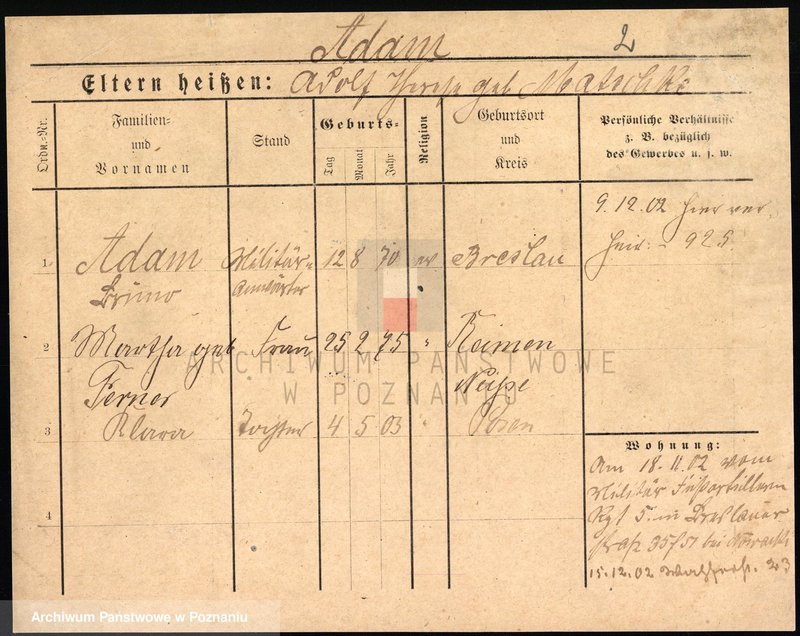 Adam 2
Eltern heißen: Adolf Therese geb Matschke
Ordn.-Nr.
Familien-
und
Vornamen
Stand
Geburts-
Tag
Monat
Jahr
Religion
Geburtsort
und
Kreis
Persönliche Verhältnisse
z. B. bezüglich
des Gewerbes u. s. w.
9.12.02 hier ver-
heir. - 925
1 Adam Militär- 12 8 70 ev Breslau
Bruno Anwärter
2 Martha geb Frau 25 2 75 " Reimen
Ferner Neisse
3 Klara Tochter 4 5 03 " Posen
4
Wohnung:
Am 18.11.02 vom
Militär Fußartillerie
Rgt 5. in Breslauer
straße 35/51 bei
15.12.02 23
ARCHIWUM PAŃSTWOWE
W POZNANIU
Archiwum Państwowe w Poznaniu